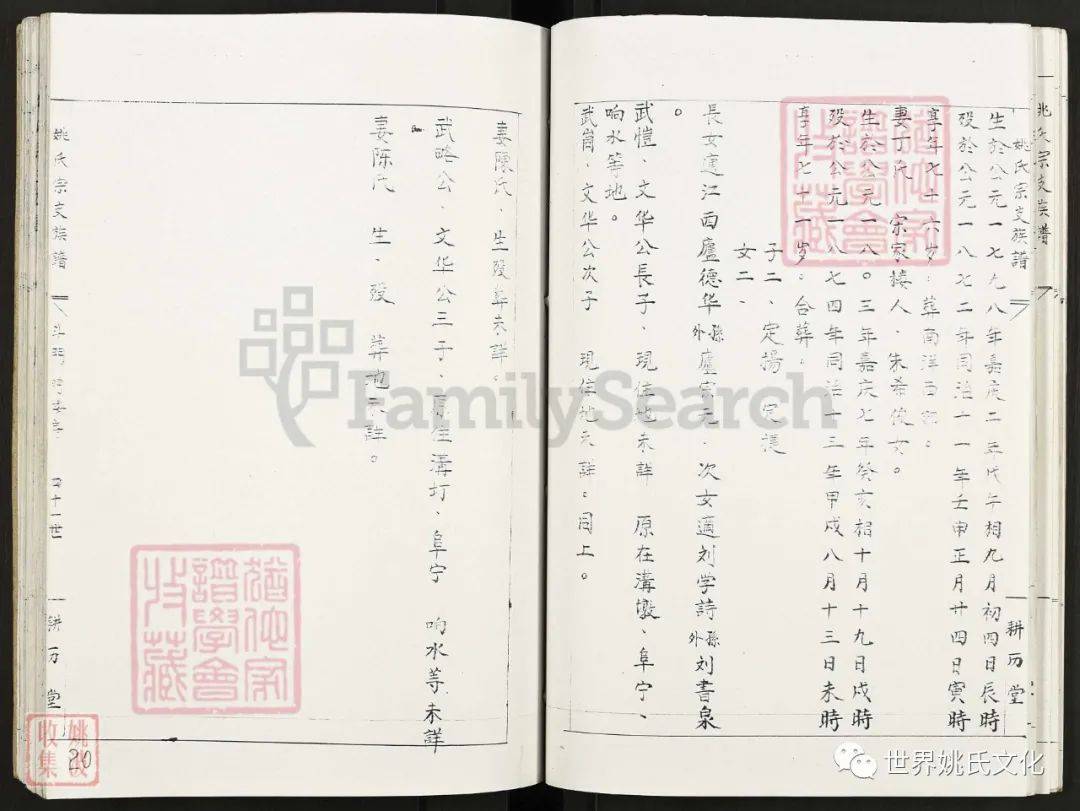 姚氏宗支族譜
耕历堂
生於公元一七九八年嘉庆二年戊午相九月初四日辰時
殁於公元一八七二年同治十一年壬申正月廿四日寅時
享年七十六岁：葬南洋西
妻丁氏 宋家楼人、朱希俊女。
生於公元一八〇三年嘉庆七年癸亥相十月十九日戌時
殁於公元一八七四年同治十三年甲戌八月十三日未時
享年七十一岁：合葬：
子二、定揚 定提
女二、
長女適江西廬德华 外孫廬宾元、次女適刘学詩 外孫刘書泉
。
武愷、文华公長子、現住地未詳 原在溝墩、阜宁、
响水等地。
武崗、文华公次子 現住地未詳：同上。
妻陳氏、生殁葬未詳。
武略公、文华公三子、原住溝圢、阜宁 响水等、未詳
妻陈氏 生、殁 葬地未詳。
姚氏宗支族譜
四十一世
耕历堂
猶他家譜學會收藏
猶他家譜學會收藏
FamilySearch
收集
20
世界姚氏文化